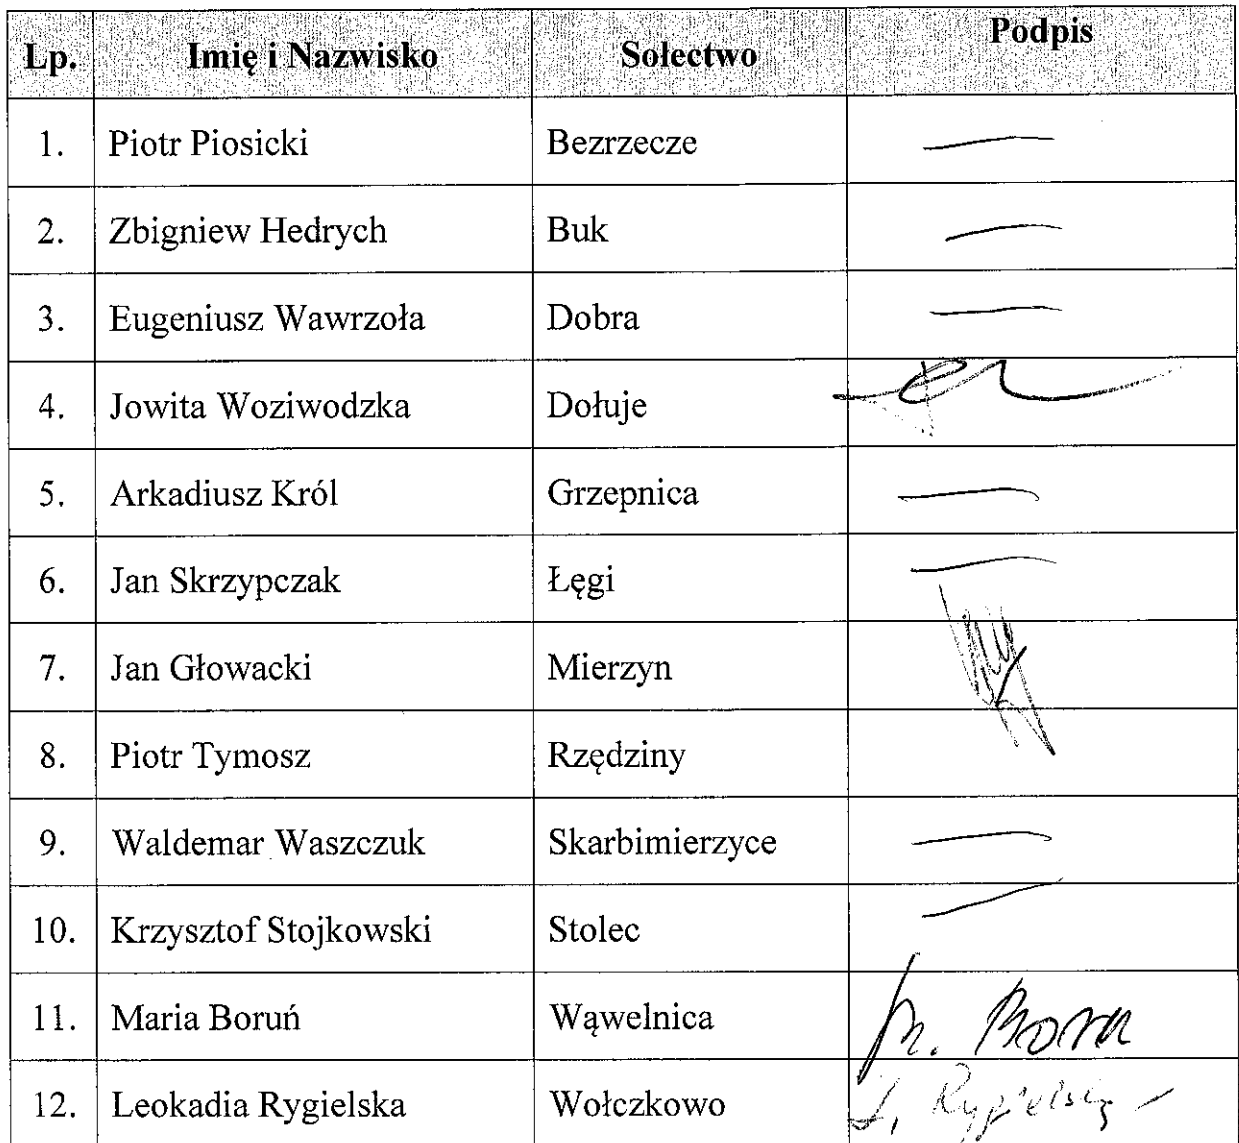 Lp. Imię i Nazwisko Sołectwo Podpis
1. Piotr Piosicki Bezrzecze —
2. Zbigniew Hedrych Buk —
3. Eugeniusz Wawrzoła Dobra —
4. Jowita Woziwodzka Dołuje
5. Arkadiusz Król Grzepnica —
6. Jan Skrzypczak Łęgi —
7. Jan Głowacki Mierzyn
8. Piotr Tymosz Rzędziny
9. Waldemar Waszczuk Skarbimierzyce —
10. Krzysztof Stojkowski Stolec —
11. Maria Boruń Wąwelnica M.
12. Leokadia Rygielska Wołczkowo